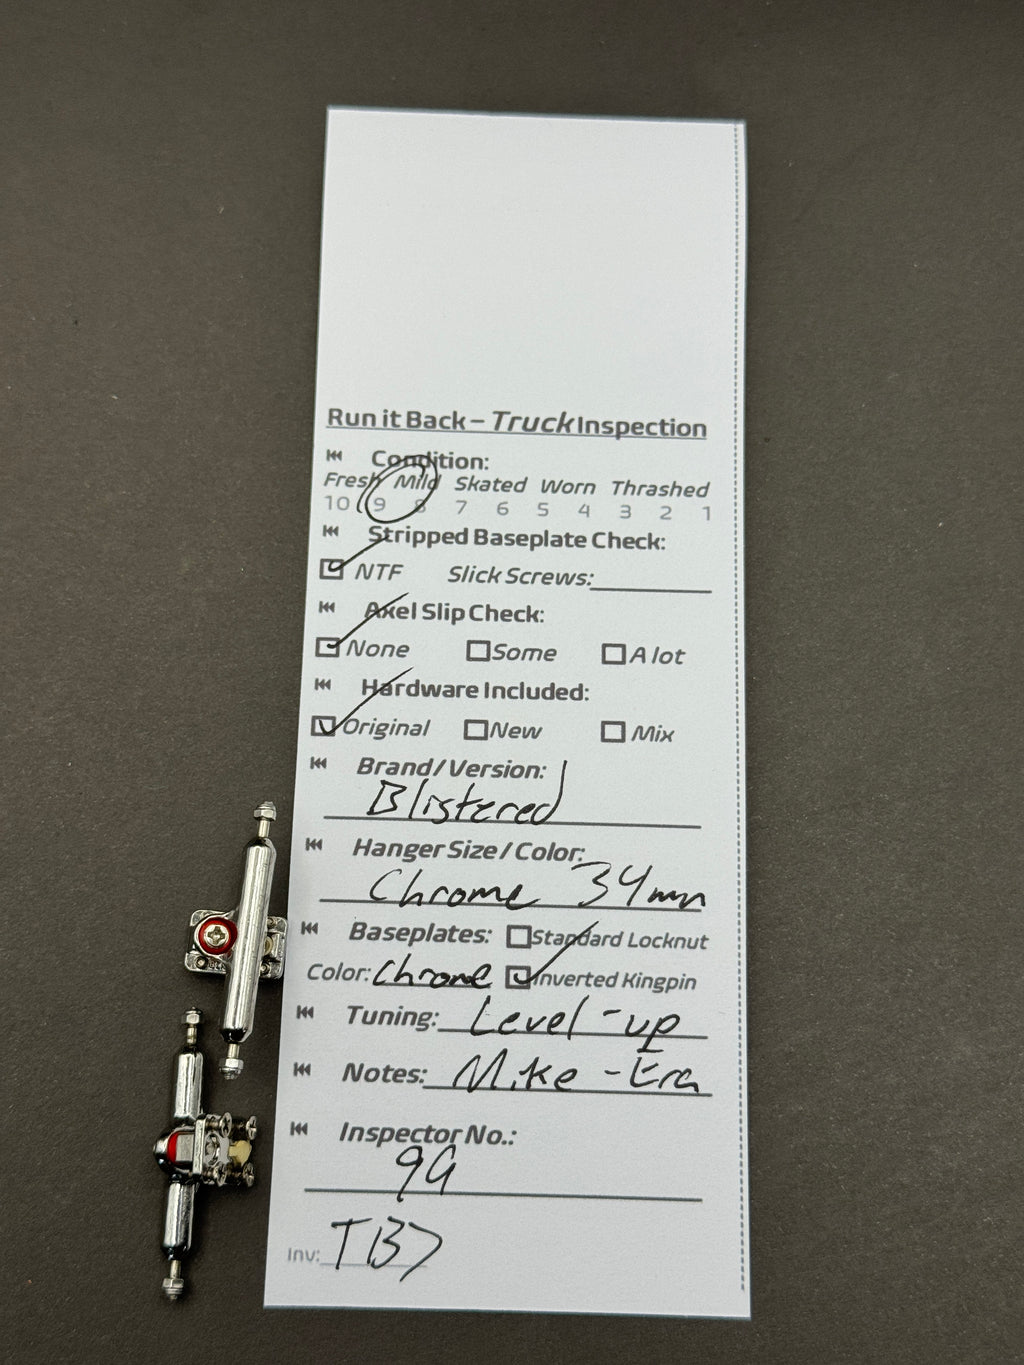 Run it Back – Truck Inspection
Condition:
Fresh Mild Skated Worn Thrashed
10 9 8 7 6 5 4 3 2 1
Stripped Baseplate Check:
NTF Slick Screws:
Axel Slip Check:
None Some A lot
Hardware Included:
Original New Mix
Brand/Version:
Blistered
Hanger Size/Color:
Chrome 34mm
Baseplates: Standard Locknut
Color: Chrome Inverted Kingpin
Tuning: Level-up
Notes: Mike-Era
Inspector No.:
99
Inv: TB7